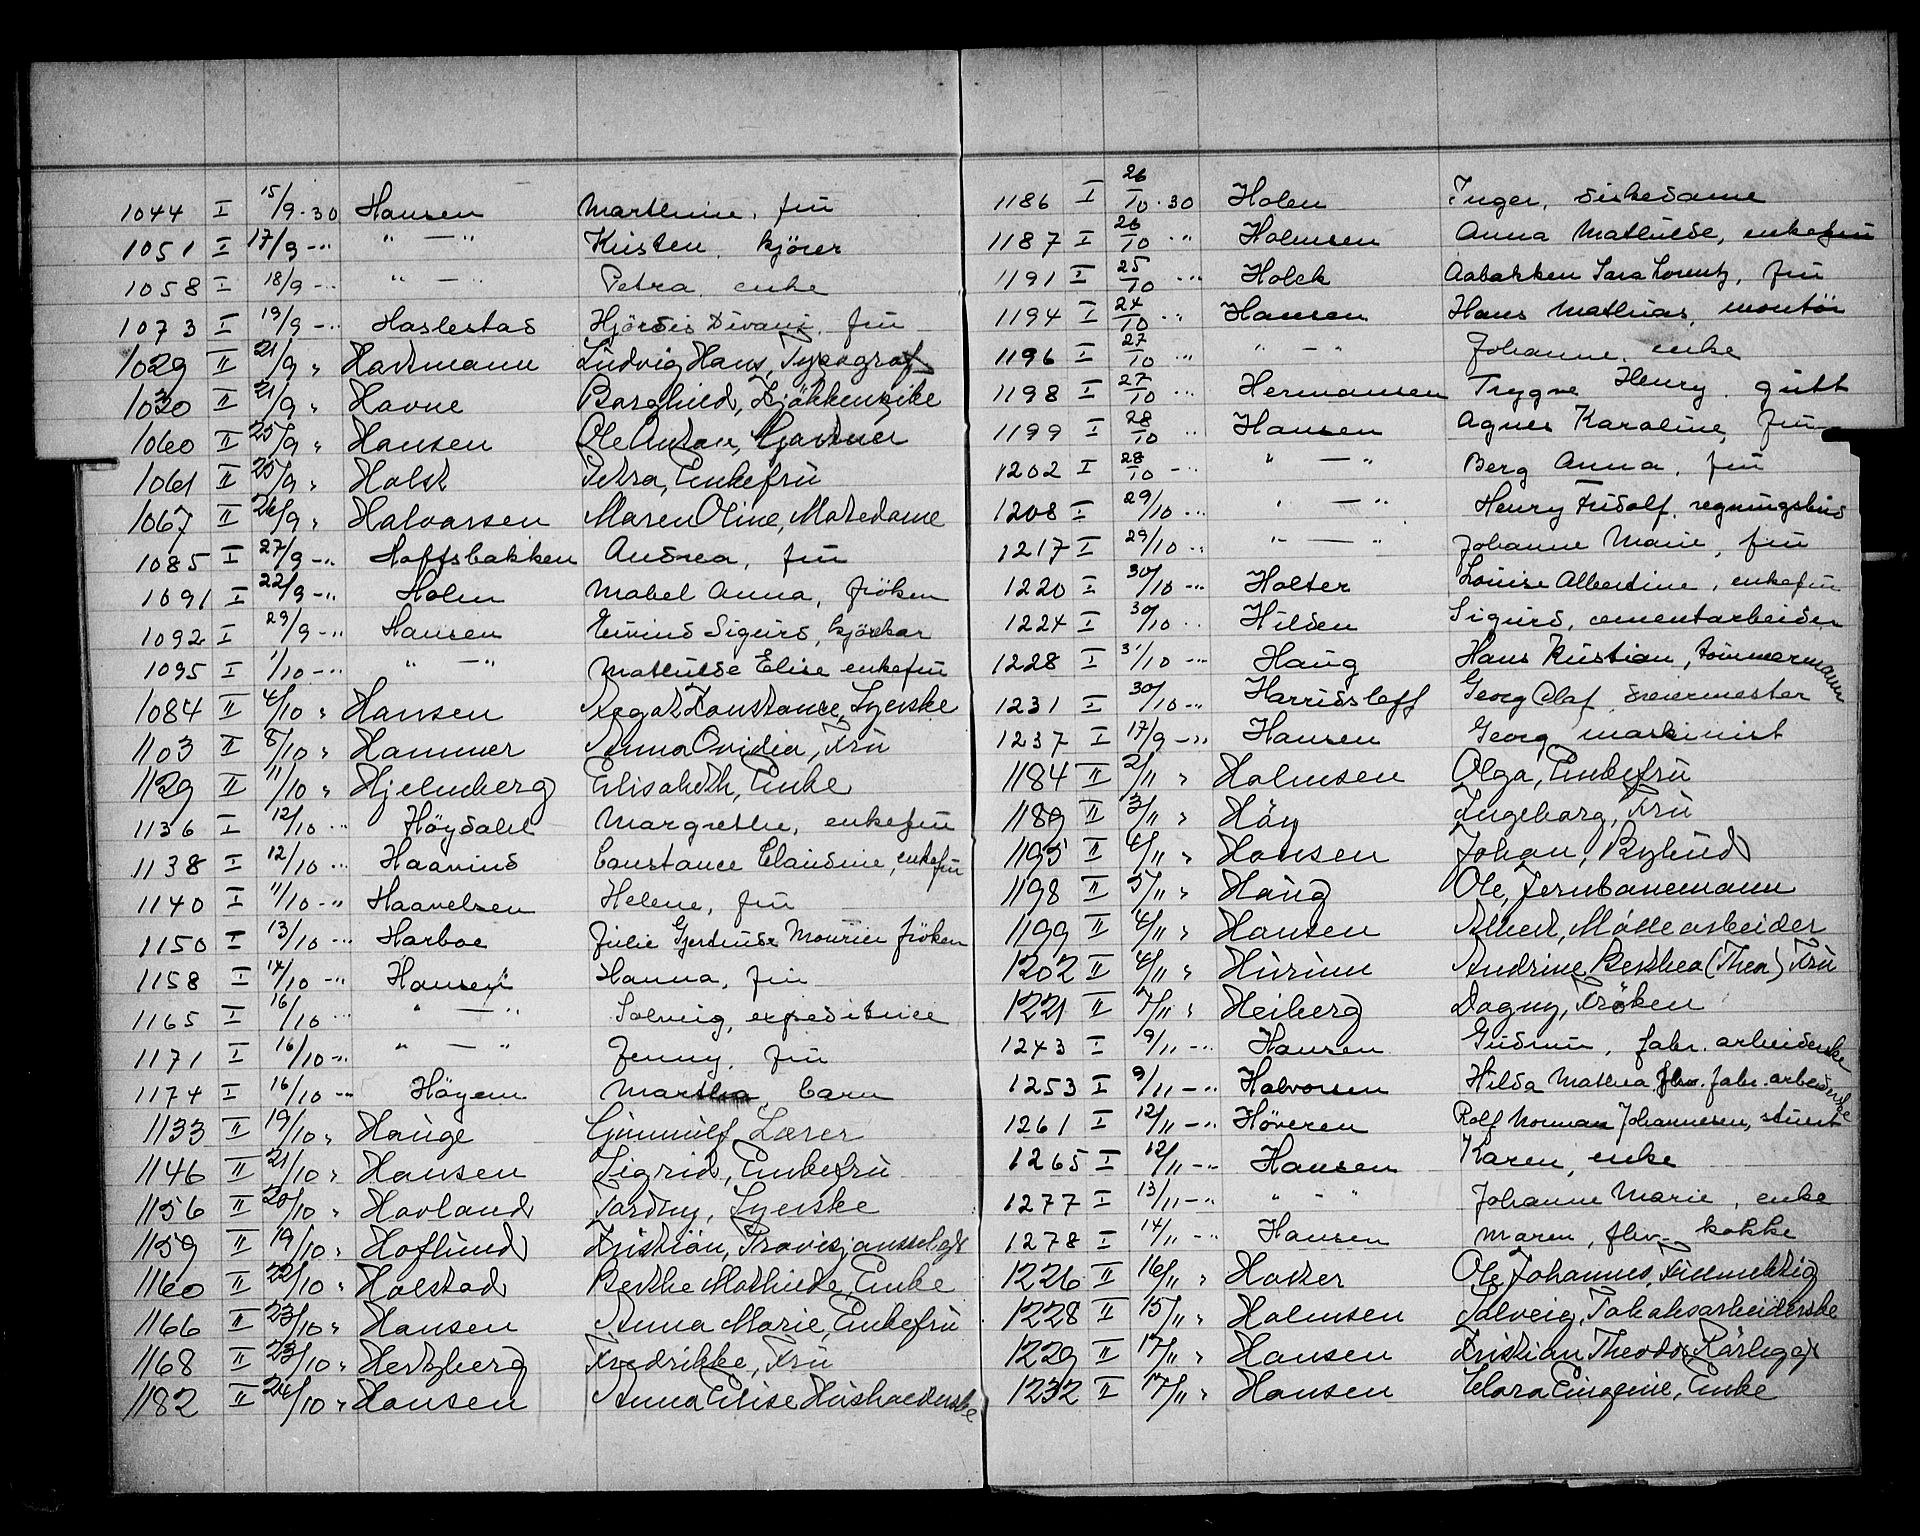 1044 I 15/9-30 Hansen Marthine, fru
1051 I 17/9 -„- " — " Kristen, kjörer
1058 I 18/9 -„- " — " Petra, enke
1073 I 19/9 -„- Haslestad Hjördis Divani, fru
1029 II 21/9 „ Hartmann Ludvig Hans, Typograf
1030 II 21/9 „ Havne Borghild, Kjökkenpike
1060 II 25/9 „ Hansen Ole Anton, Gartner
1061 II 25/9 „ Holst Petra, Enkefru
1067 II 26/9 „ Halvorsen Maren Oline, Motedame
1085 I 27/9 -„- Hoffsbakken Andrea, fru
1091 I 22/9 -„- Holm Mabel Anna, fröken
1092 I 29/9 -„- Hansen Eivind Sigurd, kjörekar
1095 I 1/10 -„- " — " Mathilde Elise enkefru
1084 II 4/10 „ Hansen Ragot Konstance, Syerske
1103 II 8/10 „ Hammer Anna Ovidia, Fru
1129 II 11/10 „ Hjelmberg Elisabeth, Enke
1136 I 12/10 -„- Höydahl Margrethe, enkefru
1138 I 12/10 -„- Haavind Constance Claudine, enkefru
1140 I 11/10 -„- Haavelsen Helene, fru
1150 I 13/10 -„- Harboe Julie Gjertrude Mourier fröken
1158 I 14/10 -„- Hansen Hanna, fru
1165 I 16/10 -„- " — " Solveig, expeditrice
1171 I 16/10 -„- " — " Jenny, fru
1174 I 16/10 -„- Höyem Martha, barn
1133 II 19/10 „ Hauge Gunnulf, Lærer
1146 II 21/10 „ Hansen Sigrid, Enkefru
1156 II 20/10 „ Hovland Tordny, Syerske
1159 II 19/10 „ Hoflund Kristian, Provisjonsselgjr
1160 II 22/10 „ Holstad Berthe Mathilde, Enke
1166 II 23/10 „ Hansen Anna Marie, Enkefru
1168 II 23/10 „ Hertzberg Fredrikke, Fru
1182 II 26/10 „ Hansen Anna Elise Husholderske
1186 I 26/10-30 Holen Inger, diskedame
1187 I 26/10 „ Holmsen Anna Mathilde, enkefru
1191 I 25/10 -„- Holck Aabakken Sara Lorentz, fru
1194 I 24/10 „ Hansen Hans Mathias, montör
1196 I 27/10 -„- " — " Johanne, enke
1198 I 27/10 -„- Hermansen Trygve Henry, gutt
1199 I 28/10 „ Hansen Agnes Karoline, fru
1202 I 28/10 -„- " — " Berg Anna, fru
1208 I 29/10 -„- " — " Henry Fridolf, regningsbud
1217 I 29/10 -„- " — " Johanne Marie, fru
1220 I 30/10 -„- Holter Louise Albertine, enkefru
1224 I 30/10 „ Hilden Sigurd, cementarbeider
1228 I 31/10 -„- Haug Hans Kristian, tömmermann
1231 I 30/10 -„- Harridsleff Georg Olaf, dreiermester
1237 I 17/9 -„- Hansen Georg maskinist
1184 II 2/11 „ Holmsen Olga, Enkefru
1189 II 3/11 „ Höy Ingeborg, Fru
1195 II 4/11 „ Hansen Johan, Bybud
1198 II 5/11 „ Haug Ole, Jernbanemann
1199 II 4/11 „ Hansen Albert, Möllearbeider
1202 II 4/11 „ Hurum Andrine Berthea (Thea) Fru
1221 II 7/11 „ Heiberg Dagny, Fröken
1243 I 9/11 -„- Hansen Gudrun, fabr. arbeiderske
1253 I 9/11 -„- Halvorsen Hilda Mathea fhv. fabr. arbeiderske
1261 I 12/11 -„- Höveren Rolf Norman Johannesen, stuert
1265 I 12/11 -„- Hansen Karen, enke
1277 I 13/11 -„- " — " Johanne Marie, enke
1278 I 14/11 -„- Hansen Maren, fhv. kokke
1226 II 16/11 „ Holter Ole Johannes, Fillmektig
1228 II 15/11 „ Holmsen Solveig, Tobaksarbeiderske
1229 II 17/11 „ Hansen Kristian Theodor, Rörleggr
1232 II 17/11 „ Hansen Clara Eugenie, Enke